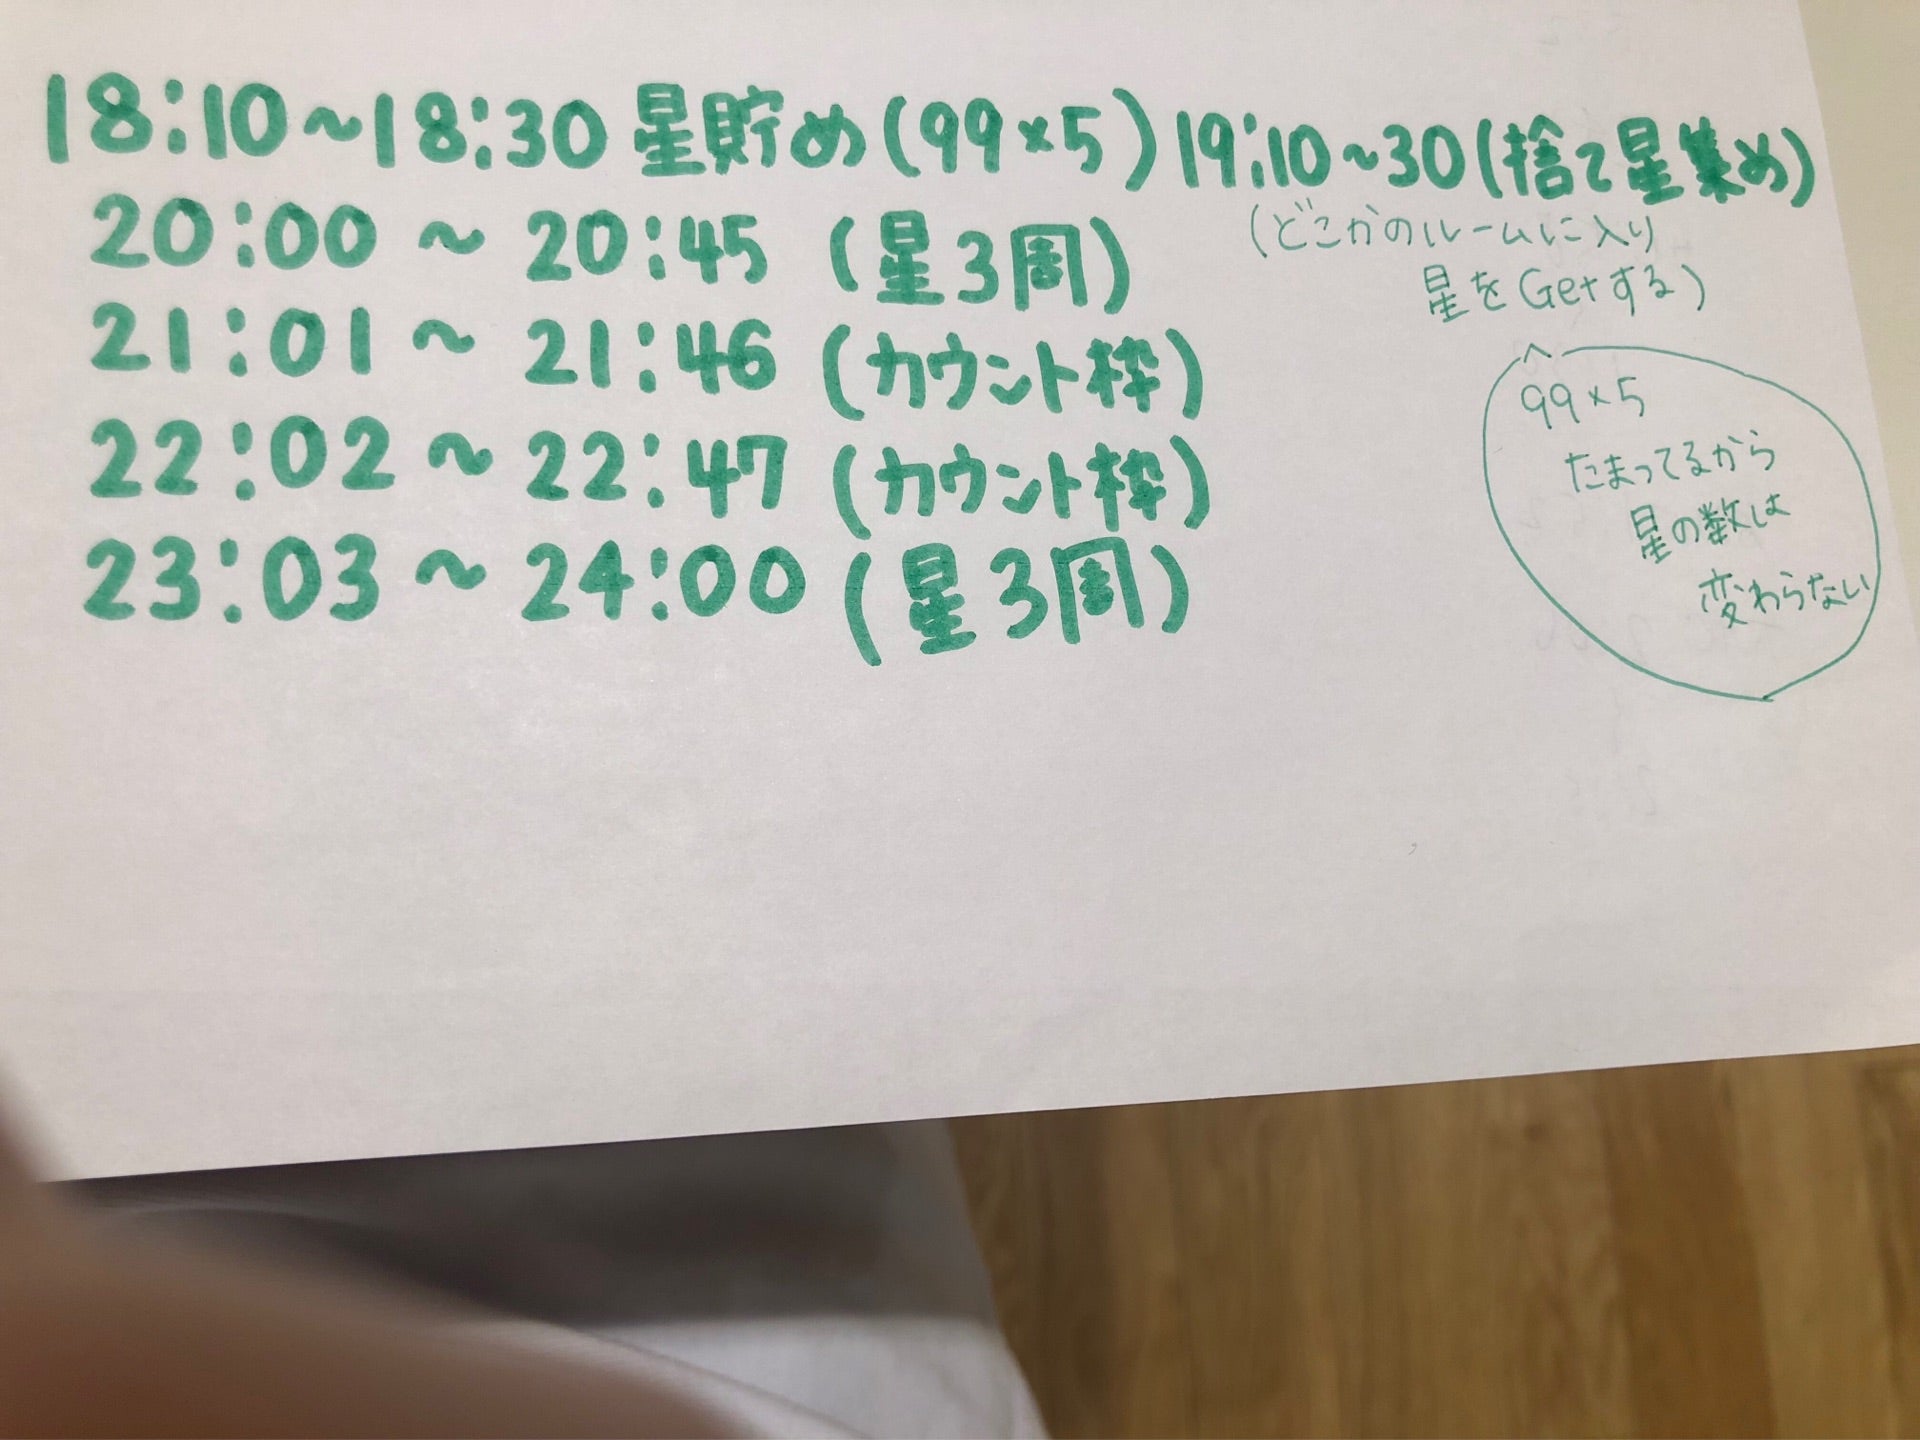 18:10～18:30 星貯め(99×5) 19:10～30(捨て星集め)
(どこかのルームに入り
星をGetする)
20:00 ～ 20:45 (星3周)
21:01 ～ 21:46 (カウント枠)
22:02 ～ 22:47 (カウント枠)
23:03 ～ 24:00 (星3周)
99×5
たまってるから
星の数は
変わらない